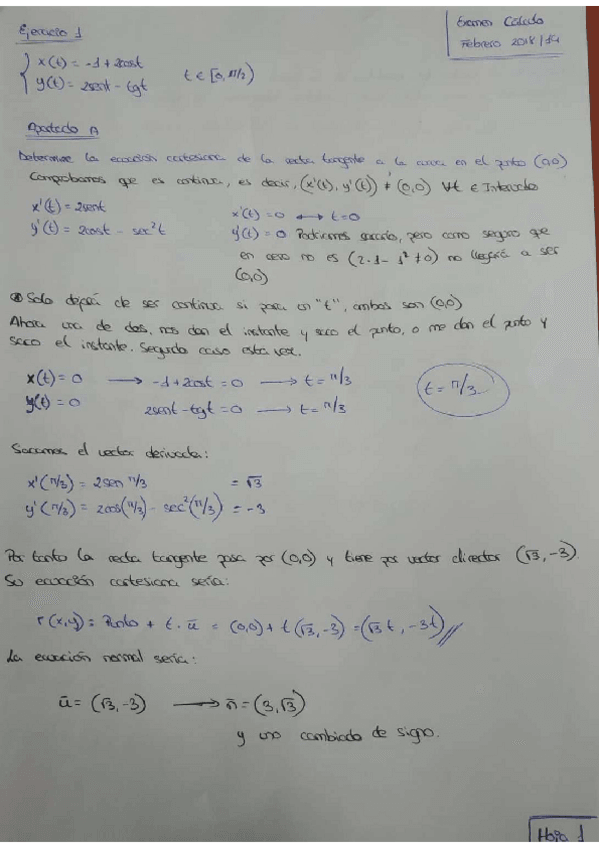 Ejercicio 1
Examen Cálculo
Febrero 2018/19
{ x(t) = -1 + 2cost
y(t) = 2sent - tgt
t ∈ [0, π/2)
Apartado A
Determine la ecuación cartesiana de la recta tangente a la curva en el punto (0,0)
Comprobamos que es continua, es decir, (x'(t), y'(t)) ≠ (0,0) ∀t ∈ Intervalo
x'(t) = 2sent
x'(t) = 0 ↔ t=0
y'(t) = 2cost - sec²t
y'(t) = 0 Podríamos sacarlo, pero como seguro que
en cero no es (2·1 - 1² ≠ 0) no llegará a ser
(0,0)
Solo dejará de ser continua si para un "t", ambos son (0,0)
Ahora una de dos, nos dan el instante y saco el punto, o me dan el punto y
saco el instante. Segundo caso esta vez.
x(t) = 0 → -1 + 2cost = 0 → t = π/3
y(t) = 0 2sent - tgt = 0 → t = π/3
t = π/3
Sacamos el vector derivada:
x'(π/3) = 2sen π/3 = √3
y'(π/3) = 2cos(π/3) - sec²(π/3) = -3
Por tanto la recta tangente pasa por (0,0) y tiene por vector director (√3, -3).
Su ecuación cartesiana sería:
r(x,y) = Punto + t · ū = (0,0) + t(√3, -3) = (√3t, -3t)//
La ecuación normal sería:
ū = (√3, -3) → n̄ = (3, √3)
y uno cambiado de signo.
Hoja 1